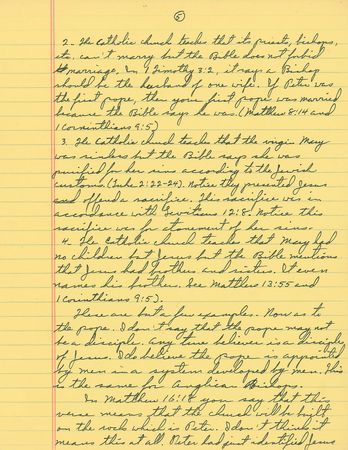 5
2 - The Catholic church teaches that its priests, bishops,
etc. can't marry but the Bible does not forbid
marriage. In 1 Timothy 3:2, it says a Bishop
should be the husband of one wife. If Peter was
the first pope, then your first pope was married
because the Bible says he was. (Matthew 8:14 and
1 Corinthians 9:5)
3. The Catholic church teaches that the virgin Mary
was sinless but the Bible says she was
purified for her sins according to the Jewish
customs. (Luke 2:22-24). Notice they presented Jesus
and offered a sacrifice. This sacrifice was in
accordance with Leviticus 12:8. Notice this
sacrifice was for atonement of her sins.
4. The Catholic church teaches that Mary had
no children but Jesus but the Bible mentions
that Jesus had brothers and sisters. It even
names his brothers. See Matthew 13:55 and
1 Corinthians 9:5).
These are but a few examples. Now as to
the pope. I don't say that the pope may not
be a disciple. Any true believer is a disciple
of Jesus. I do believe the pope is appointed
by men in a system developed by men. This
is the same for Anglican Bishops.
In Matthew 16:18 you say that this
verse means that the church will be built
on the rock which is Peter. I don't think it
means this at all. Peter had just identified Jesus